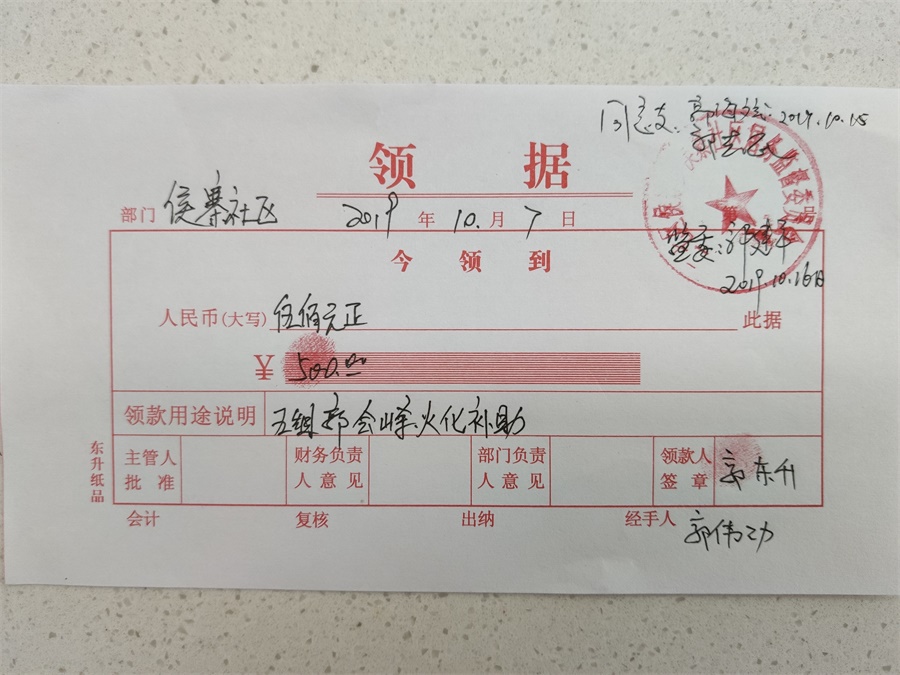 同意支:
2019.10.15
领 据
部门 侯寨社区 2019 年 10. 月 7 日
监委:
2019.10.16日
今 领 到
人民币(大写) 伍佰元正 此据
¥ 500.00
领款用途说明 五组郭会峰火化补助
主管人批准 财务负责人意见 部门负责人意见 领款人签章 郭东升
东升纸品
会计 复核 出纳 经手人 郭伟功